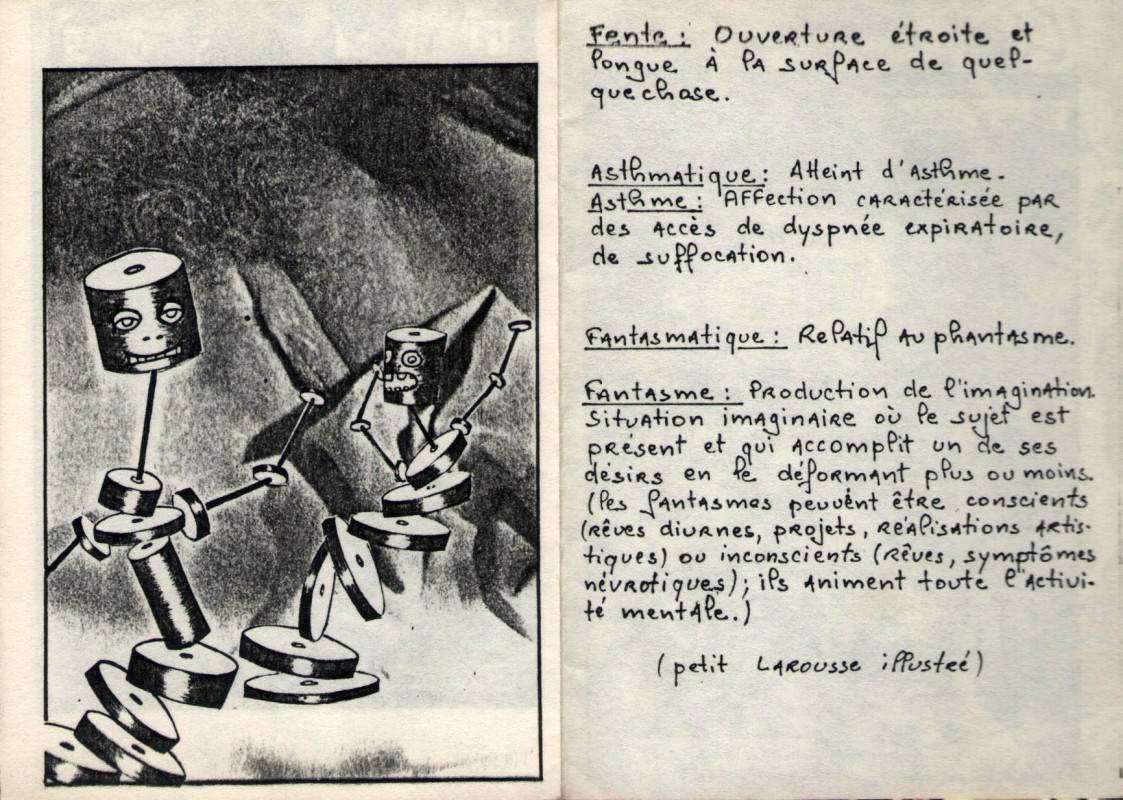 Fente : Ouverture étroite et
longue à la surface de quel-
que chose.
Asthmatique : Atteint d'Asthme.
Asthme : Affection caractérisée par
des accès de dyspnée expiratoire,
de suffocation.
Fantasmatique : Relatif au phantasme.
Fantasme : Production de l'imagination.
Situation imaginaire où le sujet est
présent et qui accomplit un de ses
désirs en le déformant plus ou moins.
(les fantasmes peuvent être conscients
(rêves diurnes, projets, réalisations artis-
tiques) ou inconscients (rêves, symptômes
névrotiques) ; ils animent toute l'activi-
té mentale.)
(petit Larousse illustré)